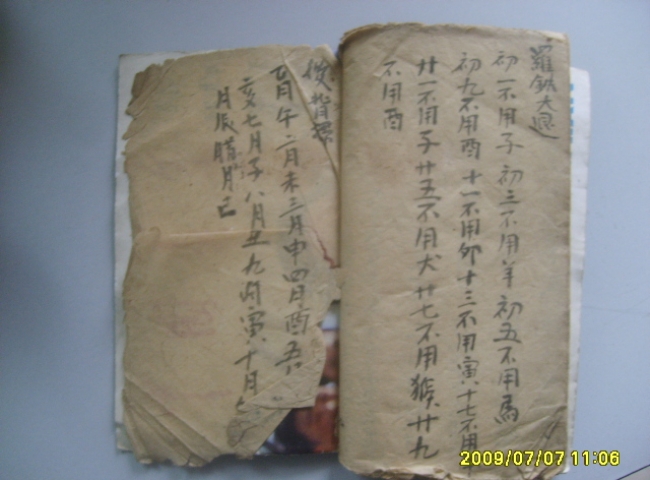 羅鉄大退
初一不用子 初三不用羊 初五不用馬
初九不用酉 十一不用卯 十三不用寅 十七不用
廿一不用子 廿五不用犬 廿七不用猴 廿九
不用酉
背
月午二月未三月申四月酉五
亥七月子八月丑九月寅十月
月辰腊月巳
2009/07/07 11:06